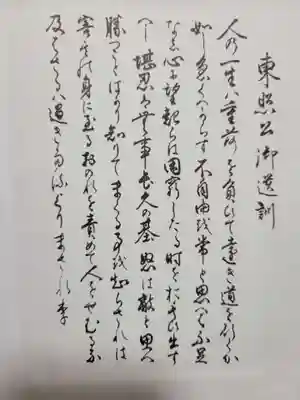 東照公御遺訓
人の一生は重荷を負いて遠き道を行くか
如し急くへからす不自由を常と思へは不足
なし心に望起らは困窮したる時を於もひ出す
へし堪忍は無事長久の基怒は敵と思へ
勝つことはかり知りてまくる事を知らされは
害其の身に至るおのれを責めて人をせむるな
及はさるは過きたるよりまされり